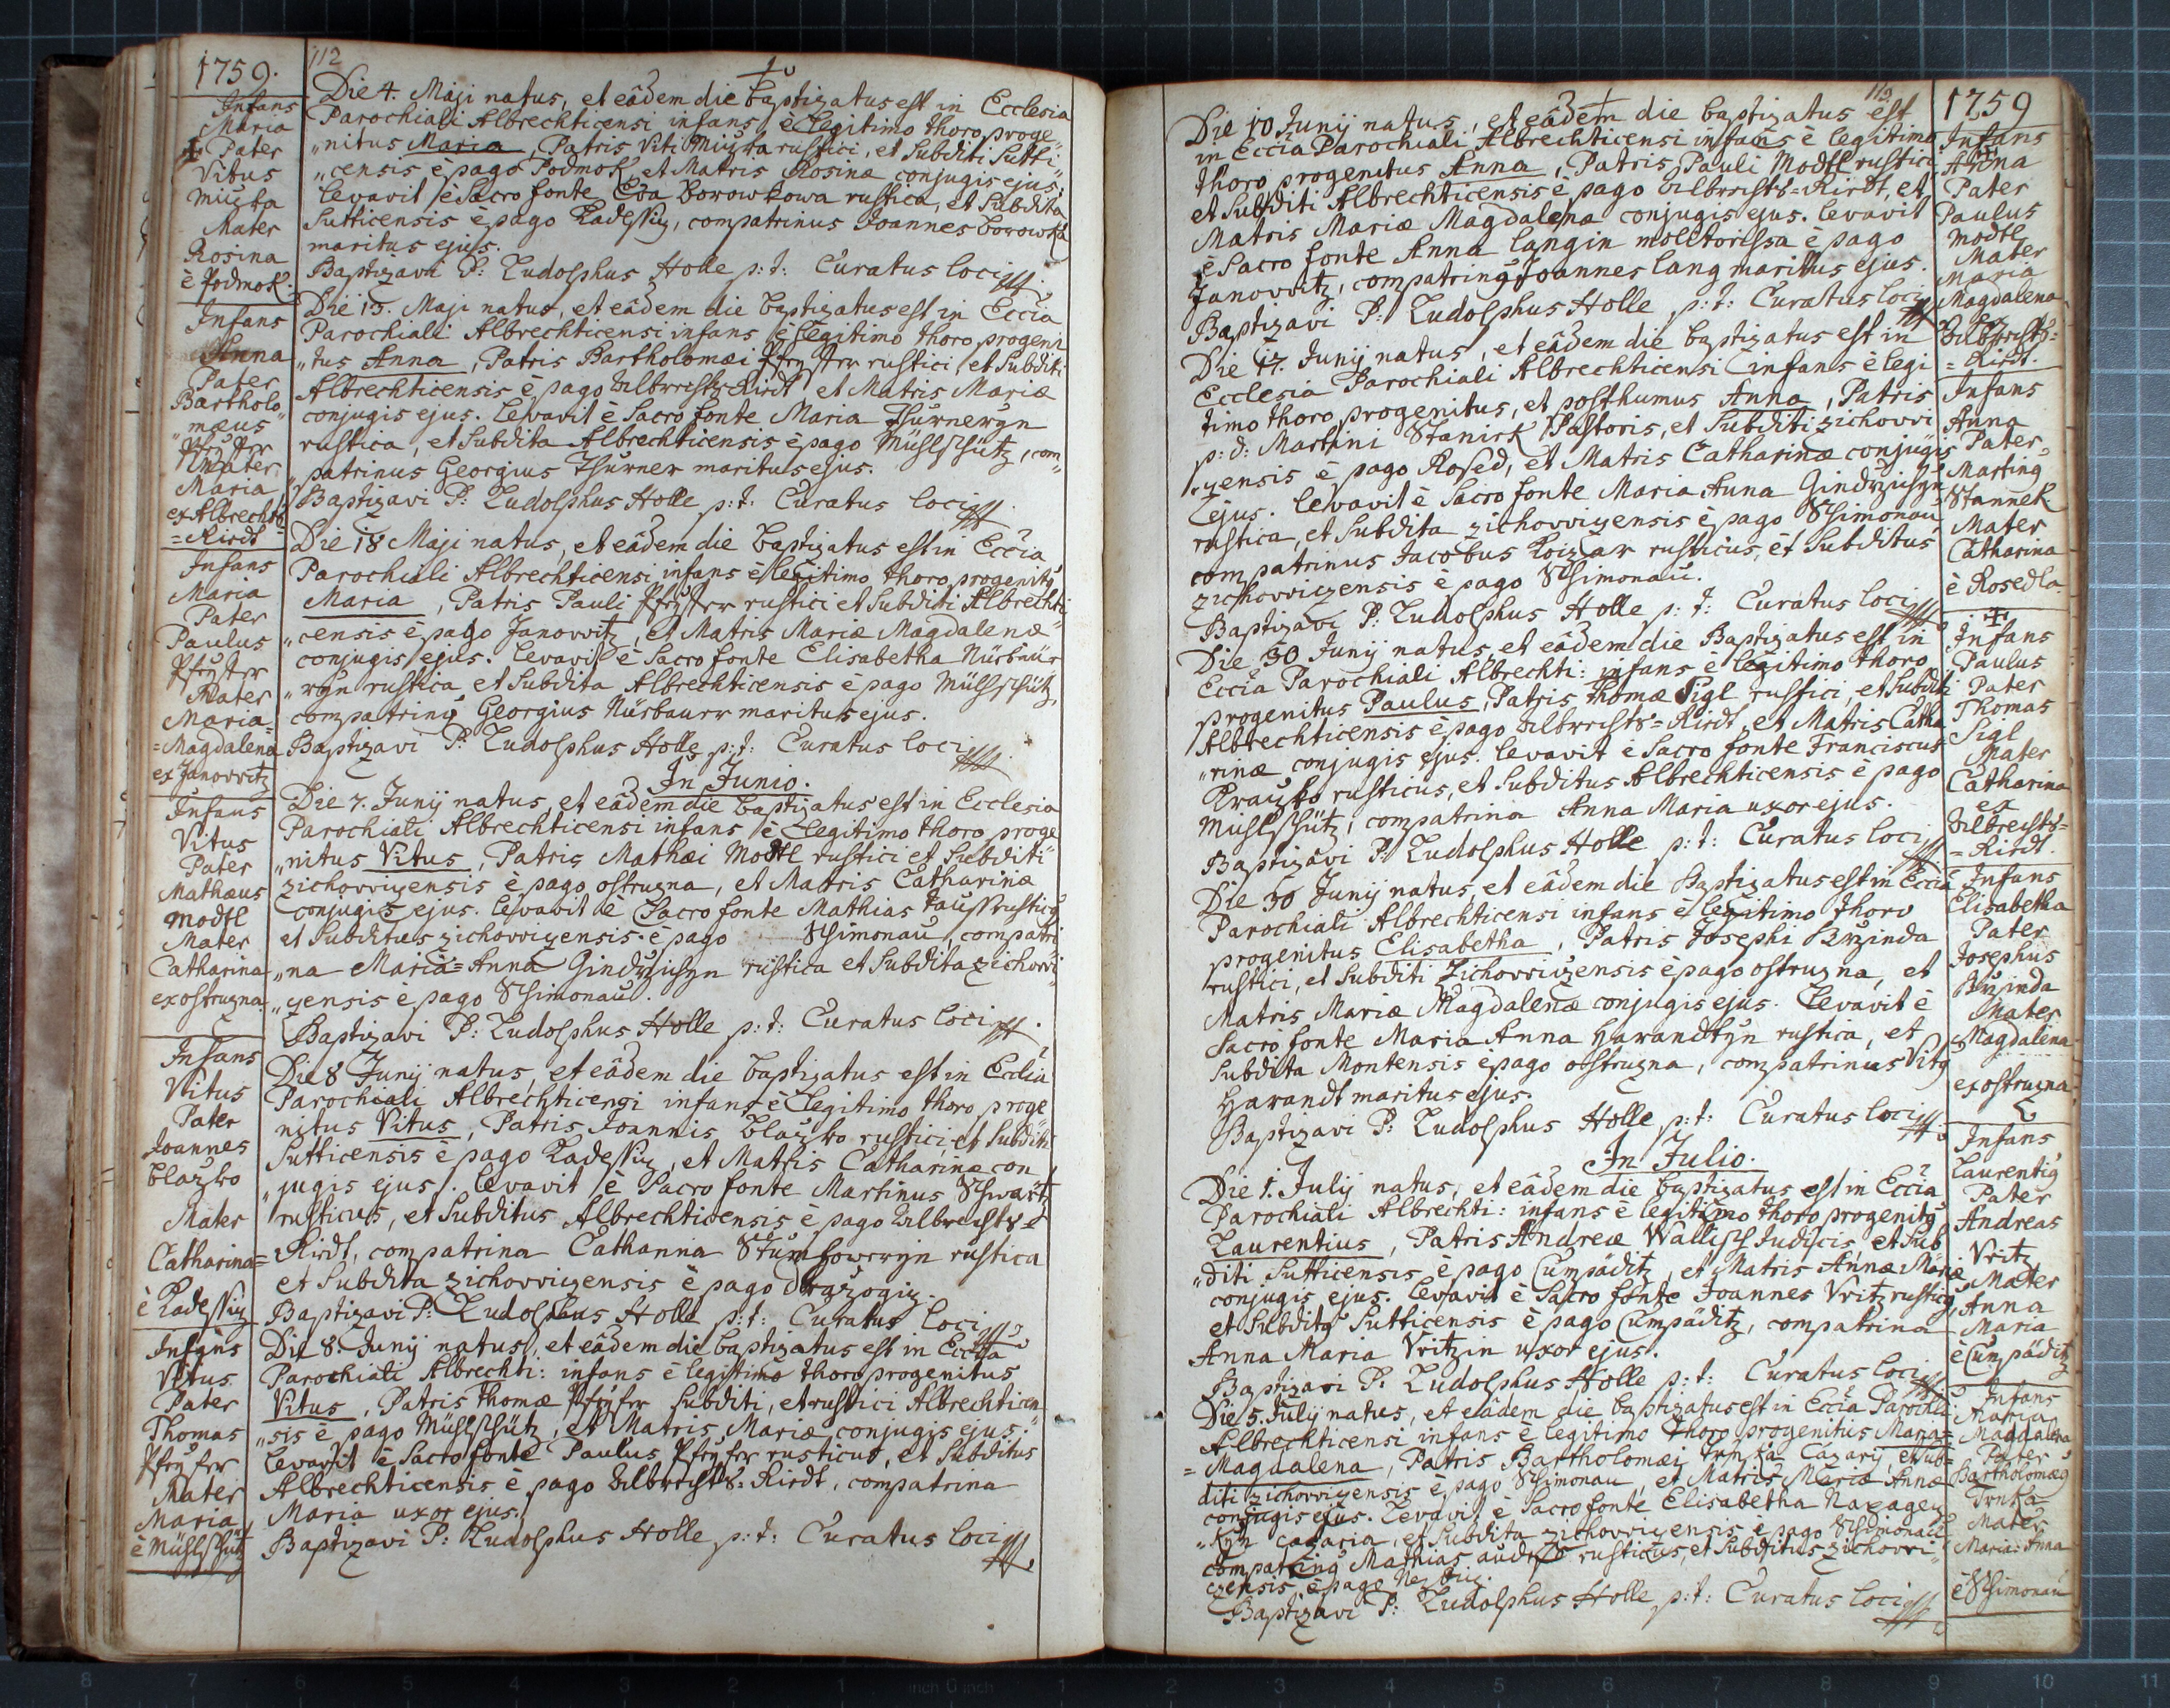 1759.
112
Infans
Maria
Pater
Vitus
Mužka
Mater
Rosina
è Podmok.
Die 4. Maji natus, et eâdem die baptizatus est in Ecclesia
Parochiali Albrechticensi infans è legitimo thoro proge„
„nitus Maria, Patris Viti rustici, et Subditi Sutti„
„censis è pago Podmok, et Matris Rosinæ conjugis ejus.
Levavit è Sacro fonte Eva Borowkowa rustica, et Subdita
Sutticensis è pago Kadessiz, compatrinus Joannes Borowka
maritus ejus.
Baptizavi P: Ludolphus Holle p: t: Curatus loci
Infans
Anna
Pater
Bartholo„
„mæus
Mater
Maria
ex Albrechts
=Ried
Die 13. Maji natus, et eâdem die baptizatus est in Eccia
Parochiali Albrechticensi infans è legitimo thoro progeni
„tus Anna, Patris Bartholomæi rustici, et Subditi
Albrechticensis è pago Albrechts Riedt et Matris Mariæ
conjugis ejus. Levavit è Sacro fonte Maria Thurneryn
rustica, et Subdita Albrechticensis è pago Müslschütz, com„
„patrinus Georgius Thurner maritus ejus.
Baptizavi P: Ludolphus Holle p: t: Curatus loci
Infans
Maria
Pater
Paulus
Mater
Maria=
=Magdalena
ex Janovvitz
Die 18 Maji natus, et eâdem die baptizatus est in Eccia
Parochiali Albrechticensi infans è legitimo thoro progenitus
Maria, Patris Pauli rustici et Subditi Albrechti
„censis è pago Janovvitz, et Matris Mariæ Magdalenæ
conjugis ejus. Levavit è Sacro fonte Elisabetha Nürbaur„
„ryn rustica, et Subdita Albrechticensis è pago Müslschütz,
compatrinus Georgius Nürbaurr maritus ejus.
Baptizavi P: Ludolphus Holle p: t: Curatus loci
In Junio.
Infans
Vitus
Pater
Mathæus
Modtl
Mater
Catharina
ex ostruzna
Die 7. Junij natus, et eâdem die baptizatus est in Ecclesia
Parochiali Albrechticensi infans è legitimo thoro proge
„nitus Vitus, Patris Mathæi Modtl rustici et Subditi
zichovvizensis è pago ostruzna, et Matris Catharinæ
conjugis ejus. Levavit è Sacro fonte Mathias rusticus
et Subditus zichovvizensis è pago Schimonau, compatri
„na Maria=Anna rustica et Subdita zichovvi„
„zensis è pago Schimonau.
Baptizavi P: Ludolphus Holle p: t: Curatus loci
Infans
Vitus
Pater
Joannes
Blažko
Mater
Catharina=
è Kadessiz
Die 8 Junij natus, et eâdem die baptizatus est in Ecclia
Parochiali Albrechticensi infans è legitimo thoro proge
nitus Vitus, Patris Joannis Blažko rustici, et Subditi
Sutticensis è pago Kadessiz, et Matris Catharinæ con
„jugis ejus. Levavit è Sacro fonte Martinus Schwartz
rusticus, et Subditus Albrechticensis è pago Albrechts=
Riedt, compatrina Catharina rustica
et Subdita zichovvizensis è pago
Baptizavi P: Ludolphus Holle p: t: Curatus loci
Infans
Vitus
Pater
Thomas
Mater
Maria
è Müslschütz
Die 8. Junij natus, et eâdem die baptizatus est in Eccia
Parochiali Albrechti: infans è legitimo thoro progenitus
Vitus, Patris Thomæ Subditi, et rustici Albrechticen„
„sis è pago Müslschütz, et Matris Mariæ conjugis ejus.
Levavit è Sacro fonte Paulus rusticus, et Subditus
Albrechticensis è pago Albrechts=Riedt, compatrina
Maria uxor ejus.
Baptizavi P: Ludolphus Holle p: t: Curatus loci
113
1759
Die 10 Junij natus, et eâdem die baptizatus est
in Eccia Parochiali Albrechticensi infans è legitimo
thoro progenitus Anna, Patris Pauli Modtl rustici
et Subditi Albrechticensis è pago Albrechts=Riedt, et
Matris Mariæ Magdalenæ conjugis ejus. Levavit
è Sacro fonte Anna Langin molitorissa è pago
Janovvitz, compatrinus Joannes Lang maritus ejus.
Baptizavi P: Ludolphus Holle p: t: Curatus loci
Infans
Anna
Pater
Paulus
Modtl
Mater
Maria
Magdalena
ex
Albrechts=
=Riedt.
Die 17. Junij natus, et eâdem die baptizatus est in
Ecclesia Parochiali Albrechticensi infans è legi
timo thoro progenitus, et posthumus Anna, Patris
p: d: Martini Stanick Pastoris, et Subditi zichovvi
„zensis è pago Rosed, et Matris Catharinæ conjugis
ejus. Levavit è Sacro fonte Maria Anna
rustica, et Subdita zichovvizensis è pago Schimonau
compatrinus Jacobus rusticus, et Subditus
zichovvizensis è pago Schimonau.
Baptizavi P: Ludolphus Holle p: t: Curatus loci
Infans
Anna
Pater
Martinus
Stannek
Mater
Catharina
è Rosedla
Die 30 Junij natus, et eâdem die Baptizatus est in
Eccia Parochiali Albrechti: infans è legitimo thoro
progenitus Paulus, Patris Thomæ Sigl rustici, et Subditi
Albrechticensis è pago Albrechts=Riedt, et Matris Catha
„rinæ conjugis ejus. Levavit è Sacro fonte Franciscus
Kražko rusticus, et Subditus Albrechticensis è pago
Müslschütz, compatrina Anna Maria uxor ejus.
Baptizavi P: Ludolphus Holle p: t: Curatus loci
Infans
Paulus
Pater
Thomas
Sigl
Mater
Catharina
ex
Albrechts=
=Riedt.
Die 30 Junij natus, et eâdem die Baptizatus est in Eccia
Parochiali Albrechticensi infans è legitimo thoro
progenitus Elisabetha, Patris Josephi Brzinda
rustici, et Subditi Zichovvizensis è pago ostruzna, et
Matris Mariæ Magdalenæ conjugis ejus. Levavit è
Sacro fonte Maria Anna Harandtyn rustica, et
Subdita Montensis è pago ostruzna, compatrinus Vitus
Harandt maritus ejus.
Baptizavi P: Ludolphus Holle p: t: Curatus loci
Infans
Elisabetha
Pater
Josephus
Brzinda
Mater
Magdalena
ex ostruzna
In Julio.
Die 1. Julij natus, et eâdem die baptizatus est in Eccia
Parochiali Albrechti: infans è legitimo thoro progenitus
Laurentius, Patris Andreæ Wallisch Judicis, et Sub
„diti Sutticensis è pago Cumpäditz, et Matris Annæ Mariæ
conjugis ejus. Levavit è Sacro fonte Joannes Vritz rusticus
et Subditus Sutticensis è pago Cumpäditz, compatrina
Anna Maria Vritzin uxor ejus.
Baptizavi P: Ludolphus Holle p: t: Curatus loci
Infans
Laurentius
Pater
Andreas
Vritz
Mater
Anna
Maria
è Cumpäditz
Die 5. Julij natus, et eâdem die baptizatus est in Eccia Parochli
Albrechticensi infans è legitimo thoro progenitus Maria=
=Magdalena, Patris Bartholomæi Trnka Cazarij, et Sub=
diti zichovvizensis è pago Schimonau, et Matris Mariæ Annæ
conjugis ejus. Levavit è Sacro fonte Elisabetha
cazaria, et Subdita zichovvizensis è pago Schimonau
compatrinus Mathias rusticus, et Subditus zichovvi„
zensis, è pago
Baptizavi P: Ludolphus Holle p: t: Curatus loci
Infans
Maria
Magdalena
Pater
Bartholomæus
Trnka
Mater
Maria=Anna
è Schimonau